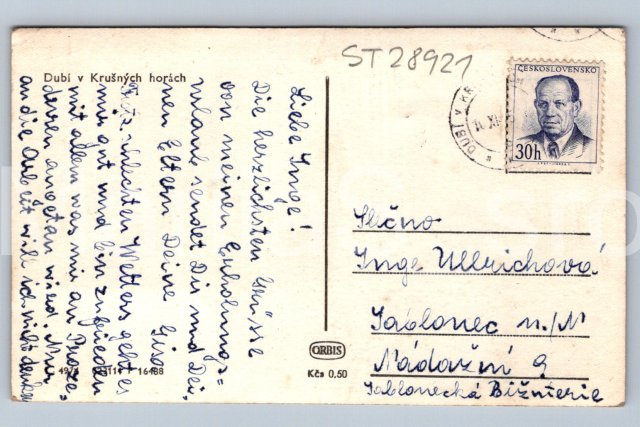 Dubí v Krušných horách
ST 28921
Liebe Inge!
Die herzlichsten Grüsse
von meinem Erholungs=
urlaub sendet Dir und Dei=
nen Eltern Deine Gisa
Trotz schlechten Wetters geht es
mir gut und bin zufrieden
mit allem was mir an Proze=
duren angetan wird. Nur
an die Arbeit will ich nicht denken
ČESKOSLOVENSKO
30h
DUBÍ v KR
Slečno
Inge Ullrichová
Jablonec n./N
Nádražní 9
Jablonecká Bižuterie
ORBIS
Kčs 0,50
16488